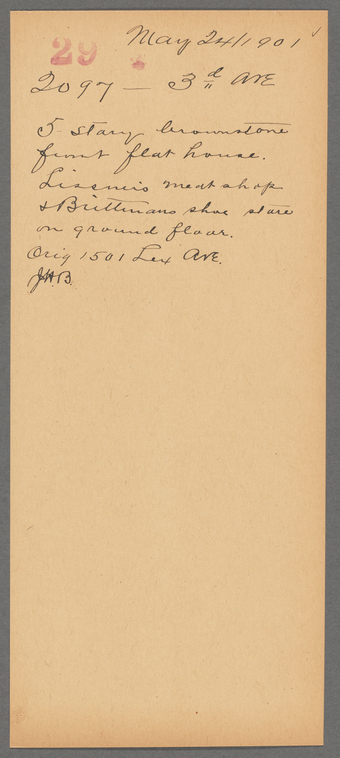 29
May 24/1901
2097 — 3rd Ave
5 story brownstone
front flat house.
Lissner's meat shop
& Brittman's shoe store
on ground floor.
Orig 1501 Lex Ave.
J.H.B.